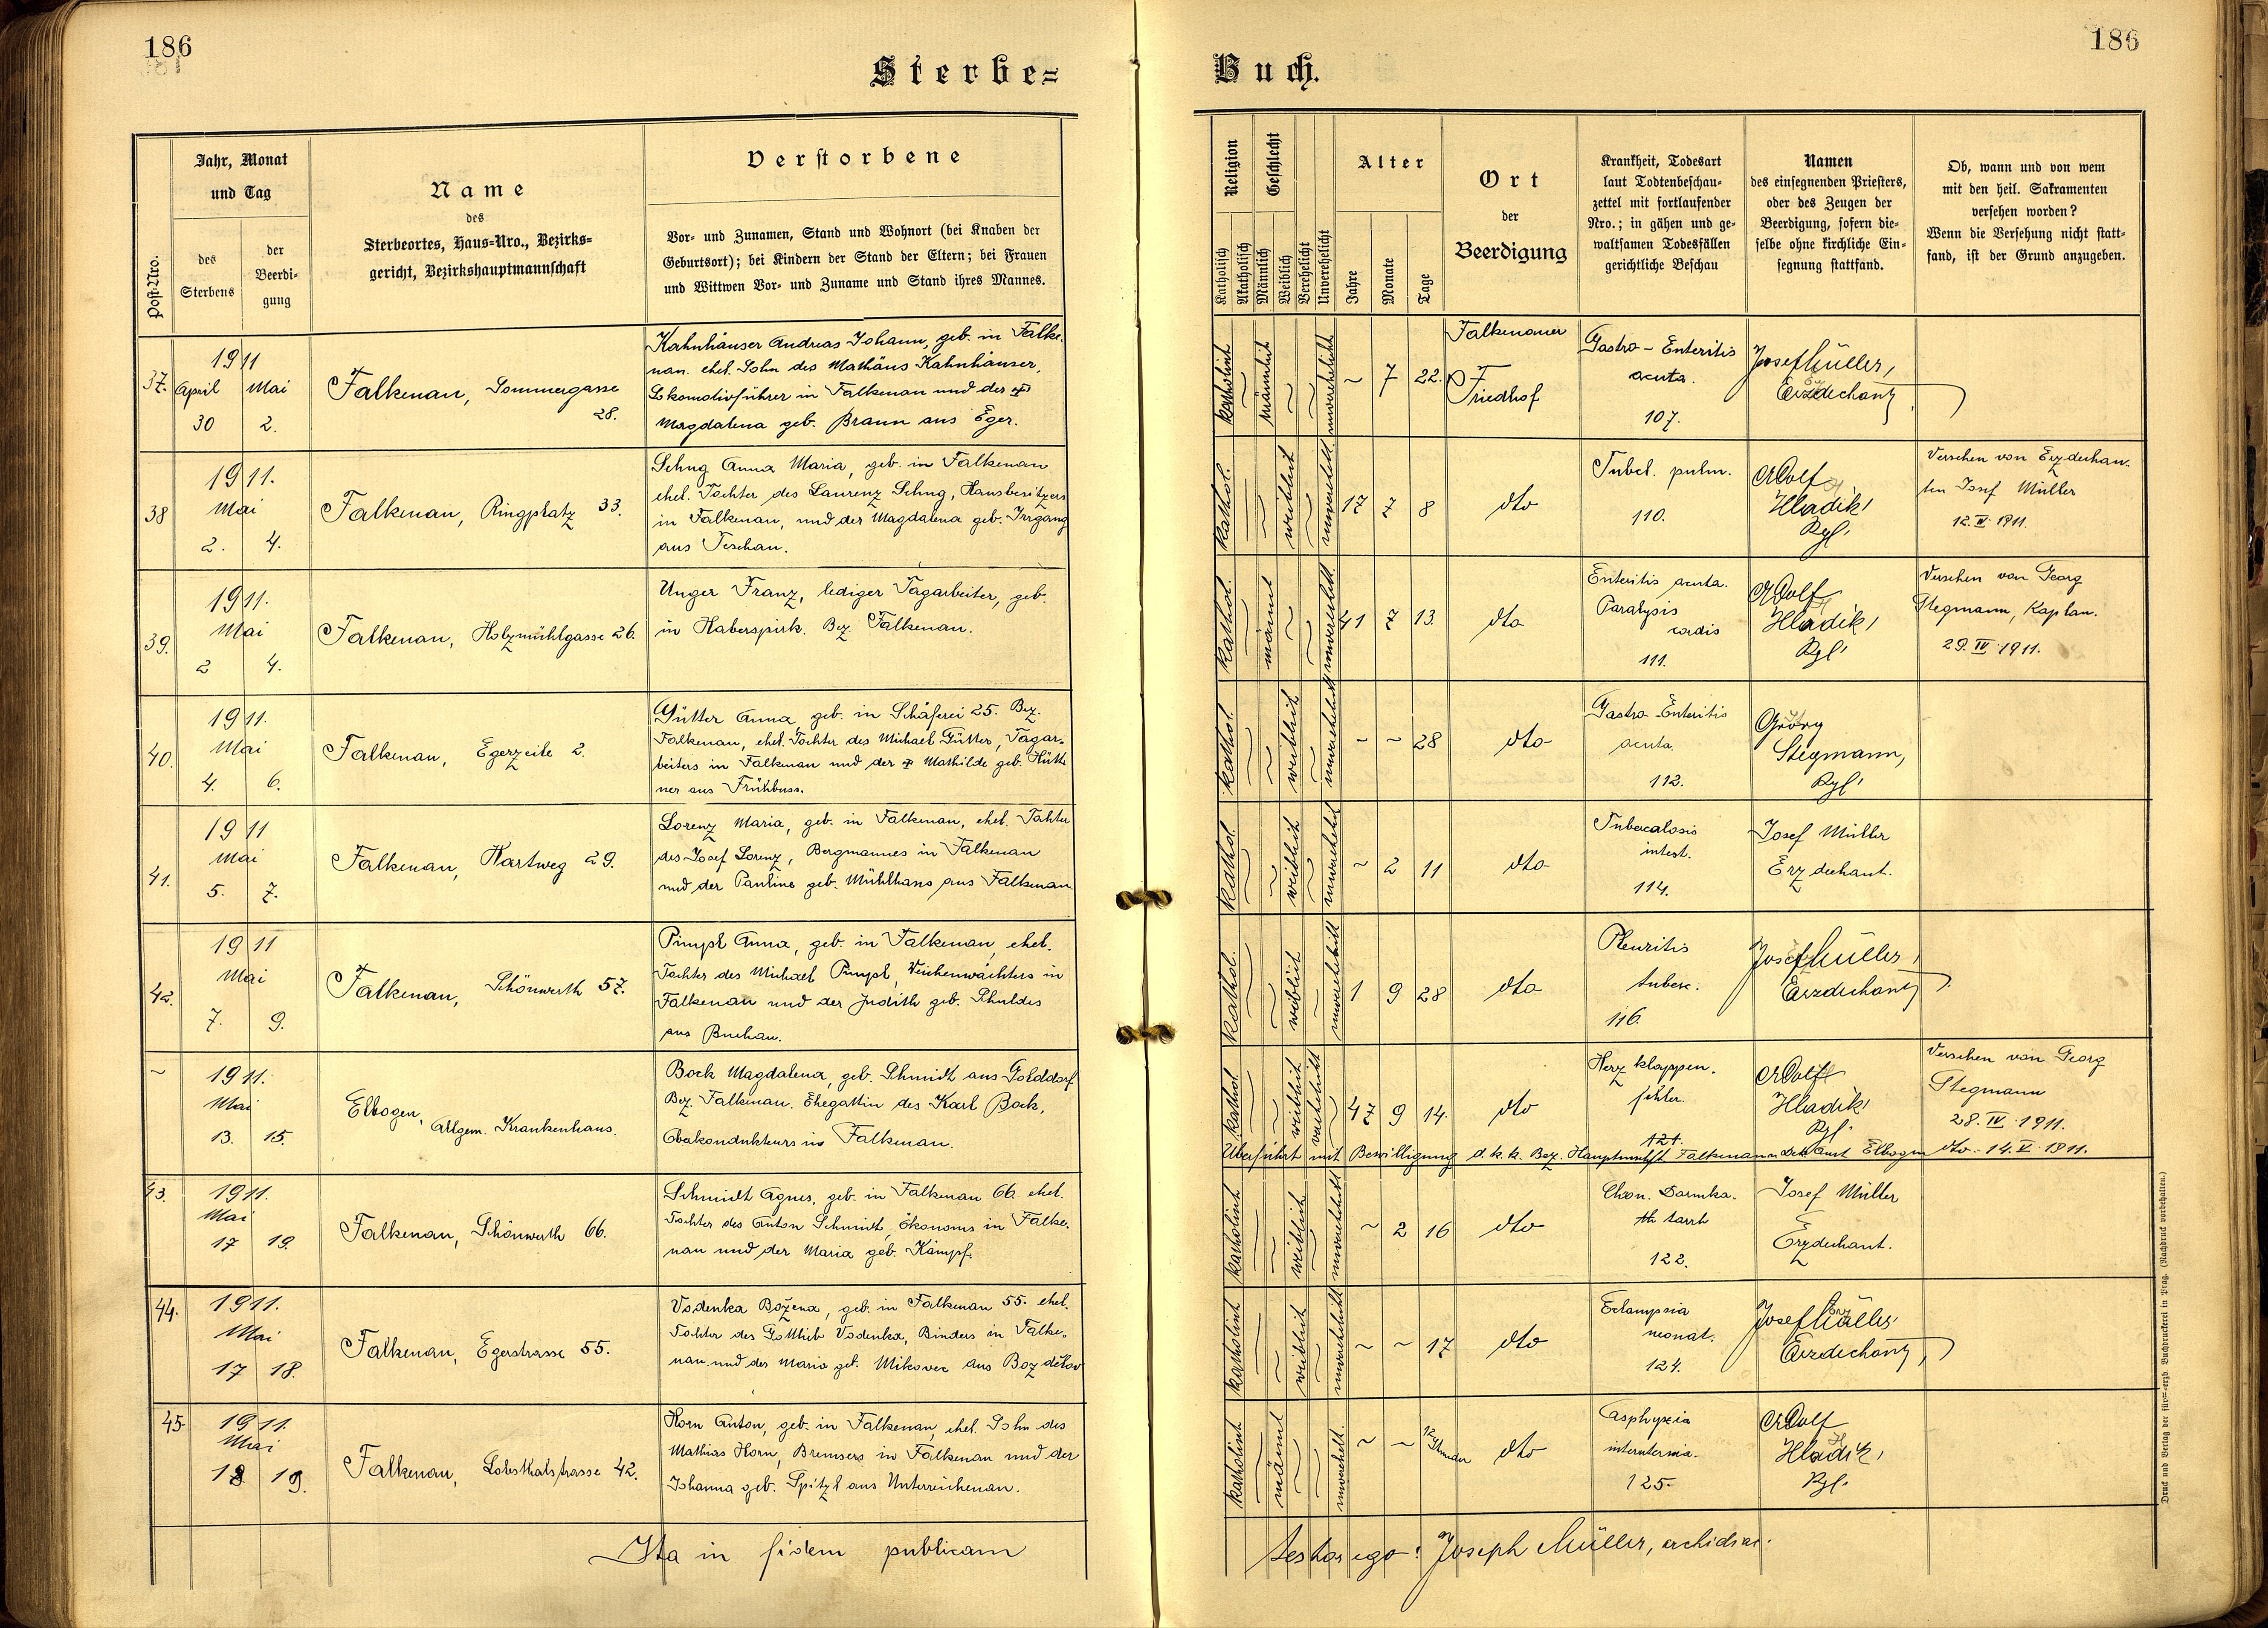 186
186
Sterbe=
Buch.
Post-Nro.
Jahr, Monat
und Tag
des
Sterbens
der
Beerdi-
gung
Name
des
Sterbeortes, Haus-Nro., Bezirks-
gericht, Bezirkshauptmannschaft
Verstorbene
Vor- und Zunamen, Stand und Wohnort (bei Knaben der
Geburtsort); bei Kindern der Stand der Eltern; bei Frauen
und Wittwen Vor- und Zuname und Stand ihres Mannes.
Religion
Katholisch
Akatholisch
Geschlecht
Männlich
Weiblich
Verehelicht
Unverehelicht
Alter
Jahre
Monate
Tage
Ort
der
Beerdigung
Krankheit, Todesart
laut Todtenbeschau-
zettel mit fortlaufender
Nro.; in gähen und ge-
waltsamen Todesfällen
gerichtliche Beschau
Namen
des einsegnenden Priesters,
oder des Zeugen der
Beerdigung, sofern die-
selbe ohne kirchliche Ein-
segnung stattfand.
Ob, wann und von wem
mit den heil. Sakramenten
versehen worden?
Wenn die Versehung nicht statt-
fand, ist der Grund anzugeben.
37.
1911
April Mai
30 2.
Falkenau, Sommergasse
28.
Kahnhäuser Andreas Johann, geb. in Falke-
nau. ehel. Sohn des Mathäus Kahnhäuser,
Lokomotivführer in Falkenau und der
Magdalena geb. Braun aus Eger.
katholisch
männlich
unverehelicht
~ 7 22.
Falkenauer
Friedhof
Gastro-Enteritis
acuta.
107.
Josef Müller,
Erzdechant
38
1911.
Mai
2. 4.
Falkenau, Ringplatz 33.
Schug Anna Maria, geb. in Falkenau
ehel. Tochter des Laurenz Schug, Hausbesitzers
in Falkenau, und der Magdalena geb. Irrgang
aus Teschau.
kathol.
weiblich
unverehel.
17 7 8
dto
Tubcl. pulm.
110.
Adolf
Hladik,
Kpl.
Versehen von Erzdechan-
ten Josef Müller
12. IV. 1911.
39.
1911.
Mai
2 4.
Falkenau, Holzmühlgasse 26.
Unger Franz, lediger Tagarbeiter, geb.
in Haberspirk. Bez. Falkenau.
kathol.
männl
unverehel.
41 7 13.
dto
Enteritis acuta.
Paralysis
cordis
111.
Adolf
Hladik,
Kpl.
Versehen von Georg
Stegmann, Kaplan.
29. IV. 1911.
40.
1911.
Mai
4. 6.
Falkenau, Egerzeile 2.
Gütter Anna, geb. in Schäferei 25. Bez.
Falkenau, ehel. Tochter des Michael Gütter, Tagar-
beiters in Falkenau und der Mathilde geb. Hütt-
ner aus Frühbuss.
kathol.
weiblich
unverehelicht
~ ~ 28
dto
Gastro-Enteritis
acuta.
112.
Georg
Stegmann,
Kpl.
41.
1911
Mai
5. 7.
Falkenau, Hartweg 29.
Lorenz Maria, geb. in Falkenau, ehel. Tochter
des Josef Lorenz, Bergmannes in Falkenau
und der Pauline geb. Mühlhans aus Falkenau
kathol.
weiblich
unverehelicht
~ 2 11
dto
Tuberculosis
intest.
114.
Josef Müller
Erzdechant.
42.
1911
Mai
7. 9.
Falkenau, Schönwerth 57.
Pimpl Anna, geb. in Falkenau, ehel.
Tochter des Michael Pimpl, Weichenwächters in
Falkenau und der Judith geb. Schuldes
aus Buchau.
kathol.
weiblich
unverehelicht
1 9 28
dto
Pleuritis
tuberc.
116.
Josef Müller,
Erzdechant
~
1911.
Mai
13. 15.
Elbogen, Allgem. Krankenhaus.
Bock Magdalena, geb. Schmidt aus Golddorf
Bez. Falkenau. Ehegattin des Karl Bock,
Oberkondukteurs in Falkenau.
kathol.
weiblich
verehelicht
47 9 14.
dto
Herzklappen-
fehler.
121.
Adolf
Hladik
Kpl.
Versehen von Georg
Stegmann
28. IV. 1911.
Überführt mit Bewilligung d. k. k. Bez. Hauptmschft Falkenau Amt Elbogen dto. 14. V. 1911.
43.
1911.
Mai
17 19.
Falkenau, Schönwerth 66.
Schmidt Agnes, geb. in Falkenau 66. ehel.
Tochter des Anton Schmidt, Ökonoms in Falke-
nau und der Maria geb. Kämpf.
katholisch
weiblich
unverehelicht
~ 2 16
dto
Chron. Darmka-
tarrh
122.
Josef Müller
Erzdechant.
44.
1911.
Mai
17 18.
Falkenau, Egerstrasse 55.
Vodenka Božena, geb. in Falkenau 55. ehel.
Tochter des Gottlieb Vodenka, Binders in Falke-
nau und der Maria geb. Mikovec aus Bozděkov
katholisch
weiblich
unverehelicht
~ ~ 17
dto
Eclampsia
neonat.
124.
Josef Müller,
Erzdechant,
45
1911.
Mai
18 19.
Falkenau, Lobsthalstrasse 42.
Horn Anton, geb. in Falkenau, ehel. Sohn des
Mathias Horn, Bremsers in Falkenau und der
Johanna geb. Spitzl aus Unterreichenau.
katholisch
männl
unverehel.
~ ~ 12 Stunden
dto
Asphyxia
125.
Adolf
Hladik,
Kpl.
Ita in fidem publicam
testor ego: Joseph Müller, archidiac.
Druck und Verlag der fürst-erzb Buchdruckerei in Prag. (Nachdruck vorbehalten.)